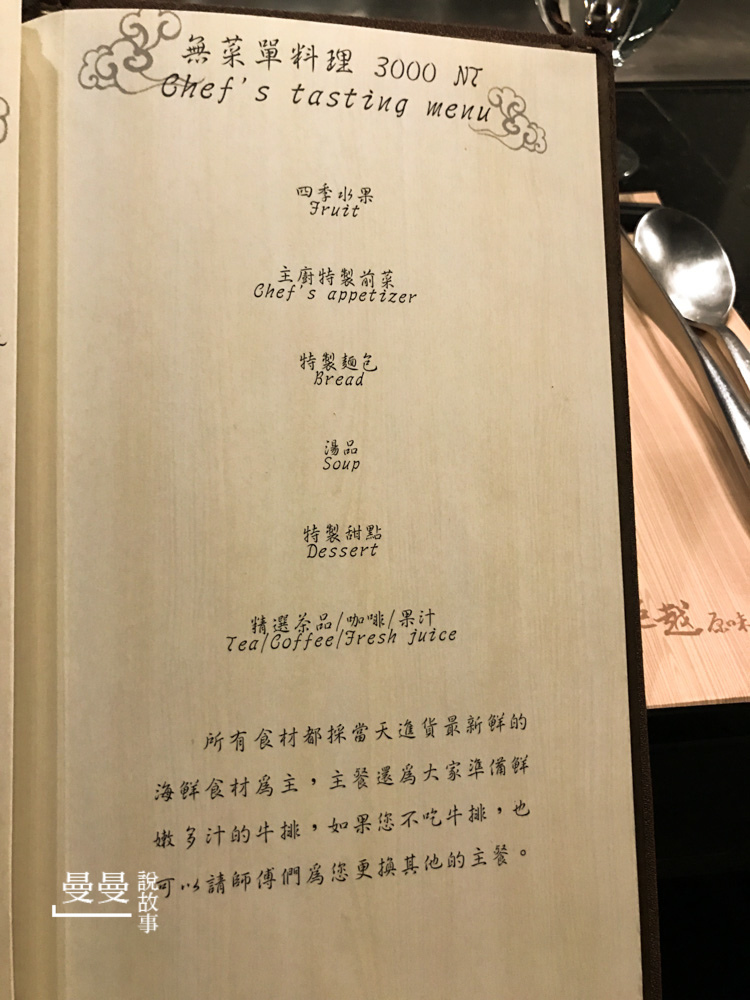 無菜單料理 3000 NT
Chef's tasting menu
四季水果
Fruit
主廚特製前菜
Chef's appetizer
特製麵包
Bread
湯品
Soup
特製甜點
Dessert
精選茶品/咖啡/果汁
Tea/Coffee/Fresh juice
所有食材都採當天進貨最新鮮的
海鮮食材為主，主餐還為大家準備鮮
嫩多汁的牛排，如果您不吃牛排，也
可以請師傅們為您更換其他的主餐。
曼曼說故事
越原味